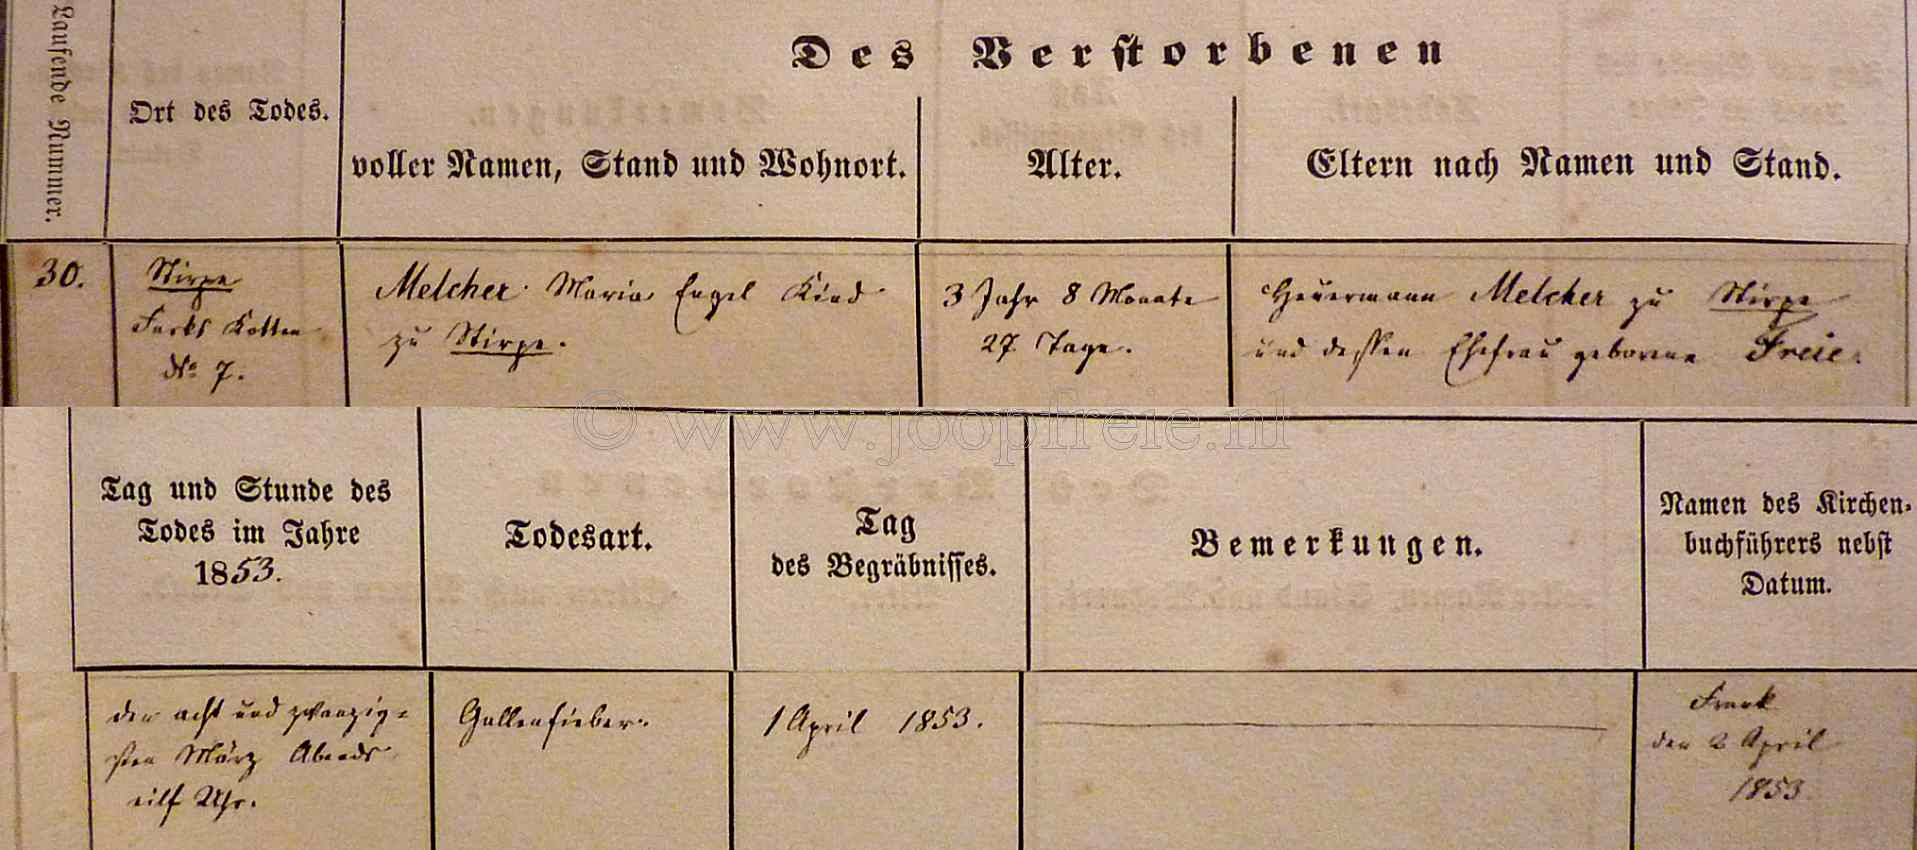 Laufende Nummer.
Ort des Todes.
Des Verstorbenen
voller Namen, Stand und Wohnort.
Alter.
Eltern nach Namen und Stand.
30.
Stirpe
Kotten
No 7.
Melcher Maria Engel Kind
zu Stirpe.
3 Jahr 8 Monate
27 Tage.
Heuermann Melcher zu Stirpe
und dessen Ehefrau geborene Freie.
© www.joopfreie.nl
Tag und Stunde des
Todes im Jahre
1853.
Todesart.
Tag
des Begräbnisses.
Bemerkungen.
Namen des Kirchen-
buchführers nebst
Datum.
den acht und zwanzig=
sten März Abends
eilf Uhr.
Gallenfieber.
1 April 1853.
den 2 April
1853